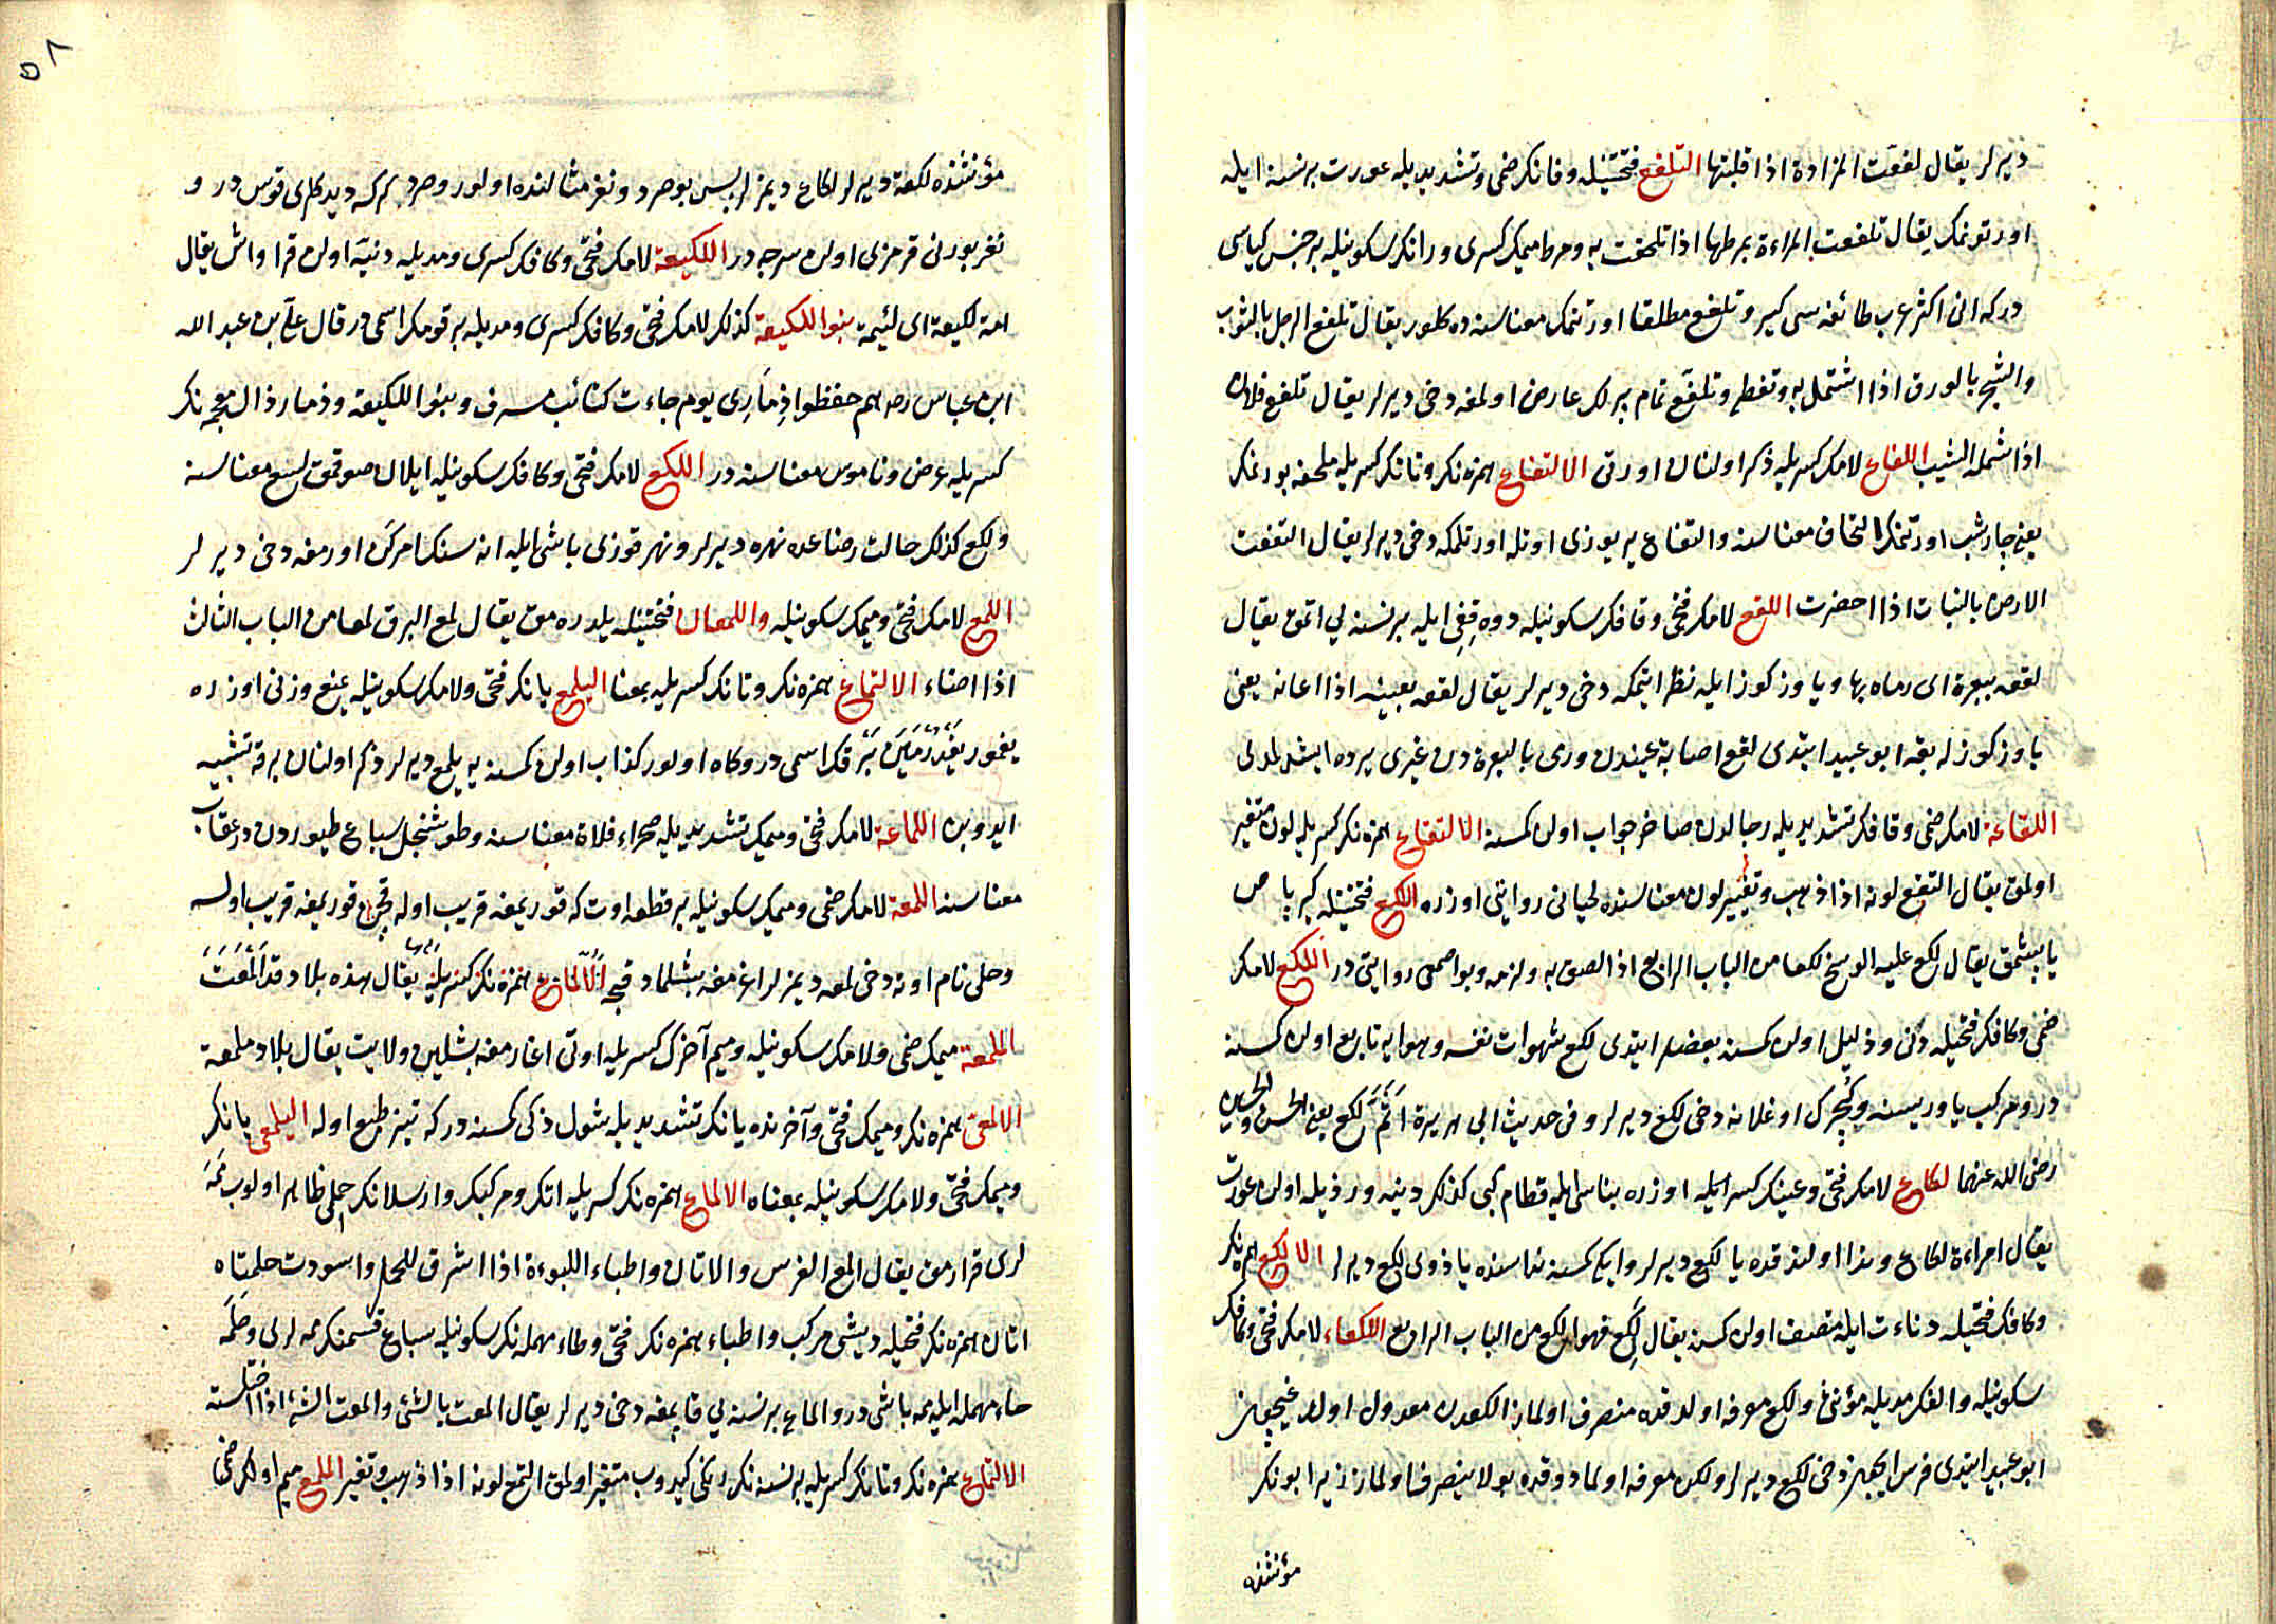 ديرلر يقال لفعت المزادة اذا قلبتها التلفع فتحتينله وفانك ضمى وتشديديله عورت برنسنه ايله
اورتونمك يقال تلفعت المراءة بمرطها اذا تلحفت به ومرط ميمك كسرى ورانك سكونيله بر جنس كياسى
دركه انى اكثر عرب طائفه سى كير وتلفع مطلقا اورتنمك معناسنه ده كلور يقال تلفع الرجل بالثوب
والشجر بالورق اذا اشتمل به وتغطى وتلفع تمام پيرلك عارض اولمغه دخى ديرلر يقال تلفع فلان
اذا شمله الشيب اللفاع لامك كسريله ذكر اولنان اورتى الالتفاع همزه نك وتانك كسريله ملحفه بورنمك
يعنى چارشب اورتنمك التحاف معناسنه والتفاع ير يوزى اوتله اورتلمكه دخى ديرلر يقال التفعت
الارض بالنبات اذا احضرت اللقع لامك فتحى وقافك سكونيله دوه قغى ايله برنسنه يى اتمق يقال
لقعه ببعرة اى رماه بها ويا وز كوز ايله نظر ايتمكه دخى ديرلر يقال لقعه بعينه اذا اعانه يعنى
يا وز كوزله بقه ابو عبيد ايتدى لقع اصابة عيندن ورمى بالبعرة دن غيرى يرده ايشدلمدى
اللقاعة لامك ضمى وقافك تشديديله رجالدن حاضر جواب اولن كمسنه الالتقاع همزه نك كسريله لون متغير
اولمق يقال التقع لونه اذا ذهب وتغير لون معناسنده لحيانى روايتى اوزره اللكع فتحتينله كير پاص
ياپشمق يقال لكع عليه الوسخ لكعا من الباب الرابع اذا لصق به ولزمه وبو اصمعى روايتى در اللكع لامك
ضمى وكافك فتحيله دنى وذليل اولن كمسنه بعضلر ايتدى لكع شهوات نفسه وهوايه تابع اولن كمسنه
در ومركب ياوريسنه وكچرك اوغلانه دخى لكع ديرلر وفى حديث ابى هريرة اثم لكع يعنى الحسن والحسين
رضى الله عنهما لكاع لامك فتحى وعينك كسر ايله اوزره بناسى ايله قطام كبى كذلك دنيه ورذيله اولن عورت
يقال امراءة لكاع وندا اولندقده يا لكع ديرلر وايكى كمسنه نداسنده يا ذوى لكع ديرلر الالكع همزه نك
وكافك فتحيله دناءت ايله متصف اولن كمسنه يقال لكع فهو الكع من الباب الرابع اللكعاء لامك فتحى وكافك
سكونيله والفك مديله مؤنثى ولكع معرفه اولدقده منصرف اولماز الكعدن معدول اولدوغيچون
ابو عبيد ايتدى فرس ايچون دخى لكع ديرلر ولكن معرفه اولمادوقده بو لا ينصرف اولماز زيرا بونك
مؤنثنده
٥٨
مؤنثنده لكعة ديرلر لكاع ديمزلر پس بو صرد ونغر مثالنده اولور وصرد كركه ديدكلرى قوس در و
نغر بورنى قرمزى اولن سرچه در اللكيعة لامك فتحى وكافك كسرى ومديله دنيه اولن قراواش يقال
امة لكيعة اى لئيمة بنو اللكيعة كذلك لامك فتحى وكافك كسرى ومديله بر قومك اسمى در قال على بن عبد الله
ابن عباس رضه هم حفظوا ذمارى يوم جاءت كتائب مسرف وبنو اللكيعة وذمار ذال معجمه نك
كسريله عرض وناموس معناسنه در اللكع لامك فتحى وكافك سكونيله ايلان صوقمق لسع معناسنه
ولكع كذلك حالت رضاعده نهره ديرلر ونهر قوزى باشى ايله اناسنك امرك اورمغه دخى ديرلر
اللمع لامك فتحى وميمك سكونيله واللمعان فتحتينله يلدره مق يقال لمع البرق لمعا من الباب الثالث
اذا اضاء الالتماع همزه نك وتانك كسريله بمعنا اليلمع يانك فتحى ولامك سكونيله يمنع وزنى اوزره
يغمور يغدرمين برقك اسمى در وكاه اولور كذاب اولن كمسنه يه يلمع ديرلر ذكر اولنان برقه تشبيه
ايدوبن اللماعة لامك فتحى وميمك تشديديله صحراء فلاة معناسنه وطوشنجل سباع طيوردن در عقاب
معناسنه اللمعة لامك ضمى وميمك سكونيله بر قطعه اوت كه قوريمغه قريب اوله قچن قوريمغه قريب اولسه
وحلى نام اوته دخى لمعه ديمزلر اغرمغه بشلمادقجه الالماع همزه نك كسريله يقال هذه بلاد قد المعت
الملمعة ميمك ضمى ولامك سكونيله وميم آخرك كسريله اوتى اغارمغه بشلين ولايت يقال بلاد ملمعة
الالمعى همزه نك وميمك فتحى وآخرنده يانك تشديديله شول ذكى كمسنه دركه تيز طبع اوله اليلمعى يانك
وميمك فتحى ولامك سكونيله بمعناه الالماع همزه نك كسريله اتك ومركبك وارسلانك حملى ظاهر اولوب ممه
لرى قرارمق يقال المع الفرس والاتان واطباء اللبوءة اذا اشرق للحمل واسودت حلمتاه
اتان همزه نك فتحيله ديشى مركب واطباء همزه نك فتحى وطاء مهمله نك سكونيله سباع قسمنك ممه لرى وحلمه
حاء مهمله ايله ممه باشى در والماع برنسنه يى قاپمغه دخى ديرلر يقال المعت بالشئ والمعت الشئ اذا اختلسته
الالتماع همزه نك وتانك كسريله برنسنه نك رنكى كيدوب متغير اولمق التمع لونه اذا ذهب وتغير الملمع ميم اولك ضمى